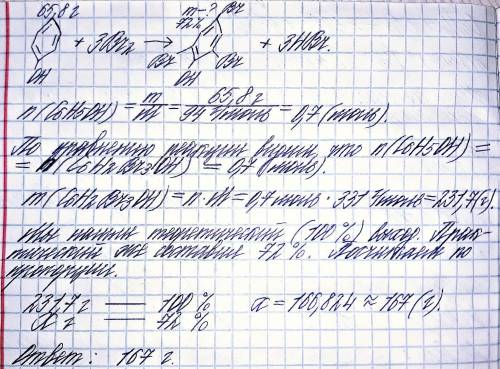 65,8г m-? 72% Br
+ 3Br₂ → Br Br + 3HBr.
OH OH
n(C₆H₅OH) = m/M = 65,8 г/94 г/моль = 0,7 (моль).
По уравнению реакции видим, что n(C₆H₅OH) =
= n(C₆H₂Br₃OH) = 0,7 (моль).
m(C₆H₂Br₃OH) = n·M = 0,7 моль · 331 г/моль = 231,7 (г).
Мы нашли теоретический (100%) выход. Прак-
тический же составил 72%. Посчитаем по
пропорции.
231,7 г — 100 %
x г — 72 % x = 166,824 ≈ 167 (г).
Ответ: 167 г.